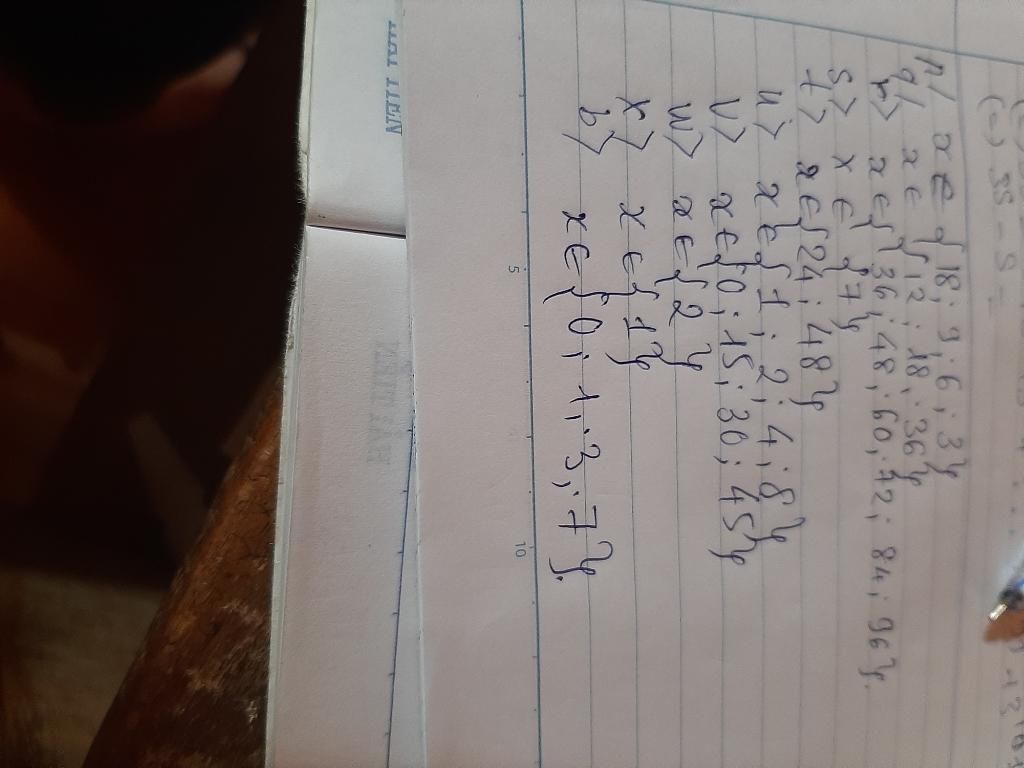 p/ x ∈ {18; 9; 6; 3}
q/ x ∈ {12; 18; 36}
r> x ∈ {36; 48; 60; 72; 84; 96}.
s> x ∈ {7}
t> x ∈ {24; 48}
u> x ∈ {1; 2; 4; 8}
v> x ∈ {0; 15; 30; 45}
w> x ∈ {2}
x> x ∈ {1}
b> x ∈ {0; 1; 3; 7}.
5
10